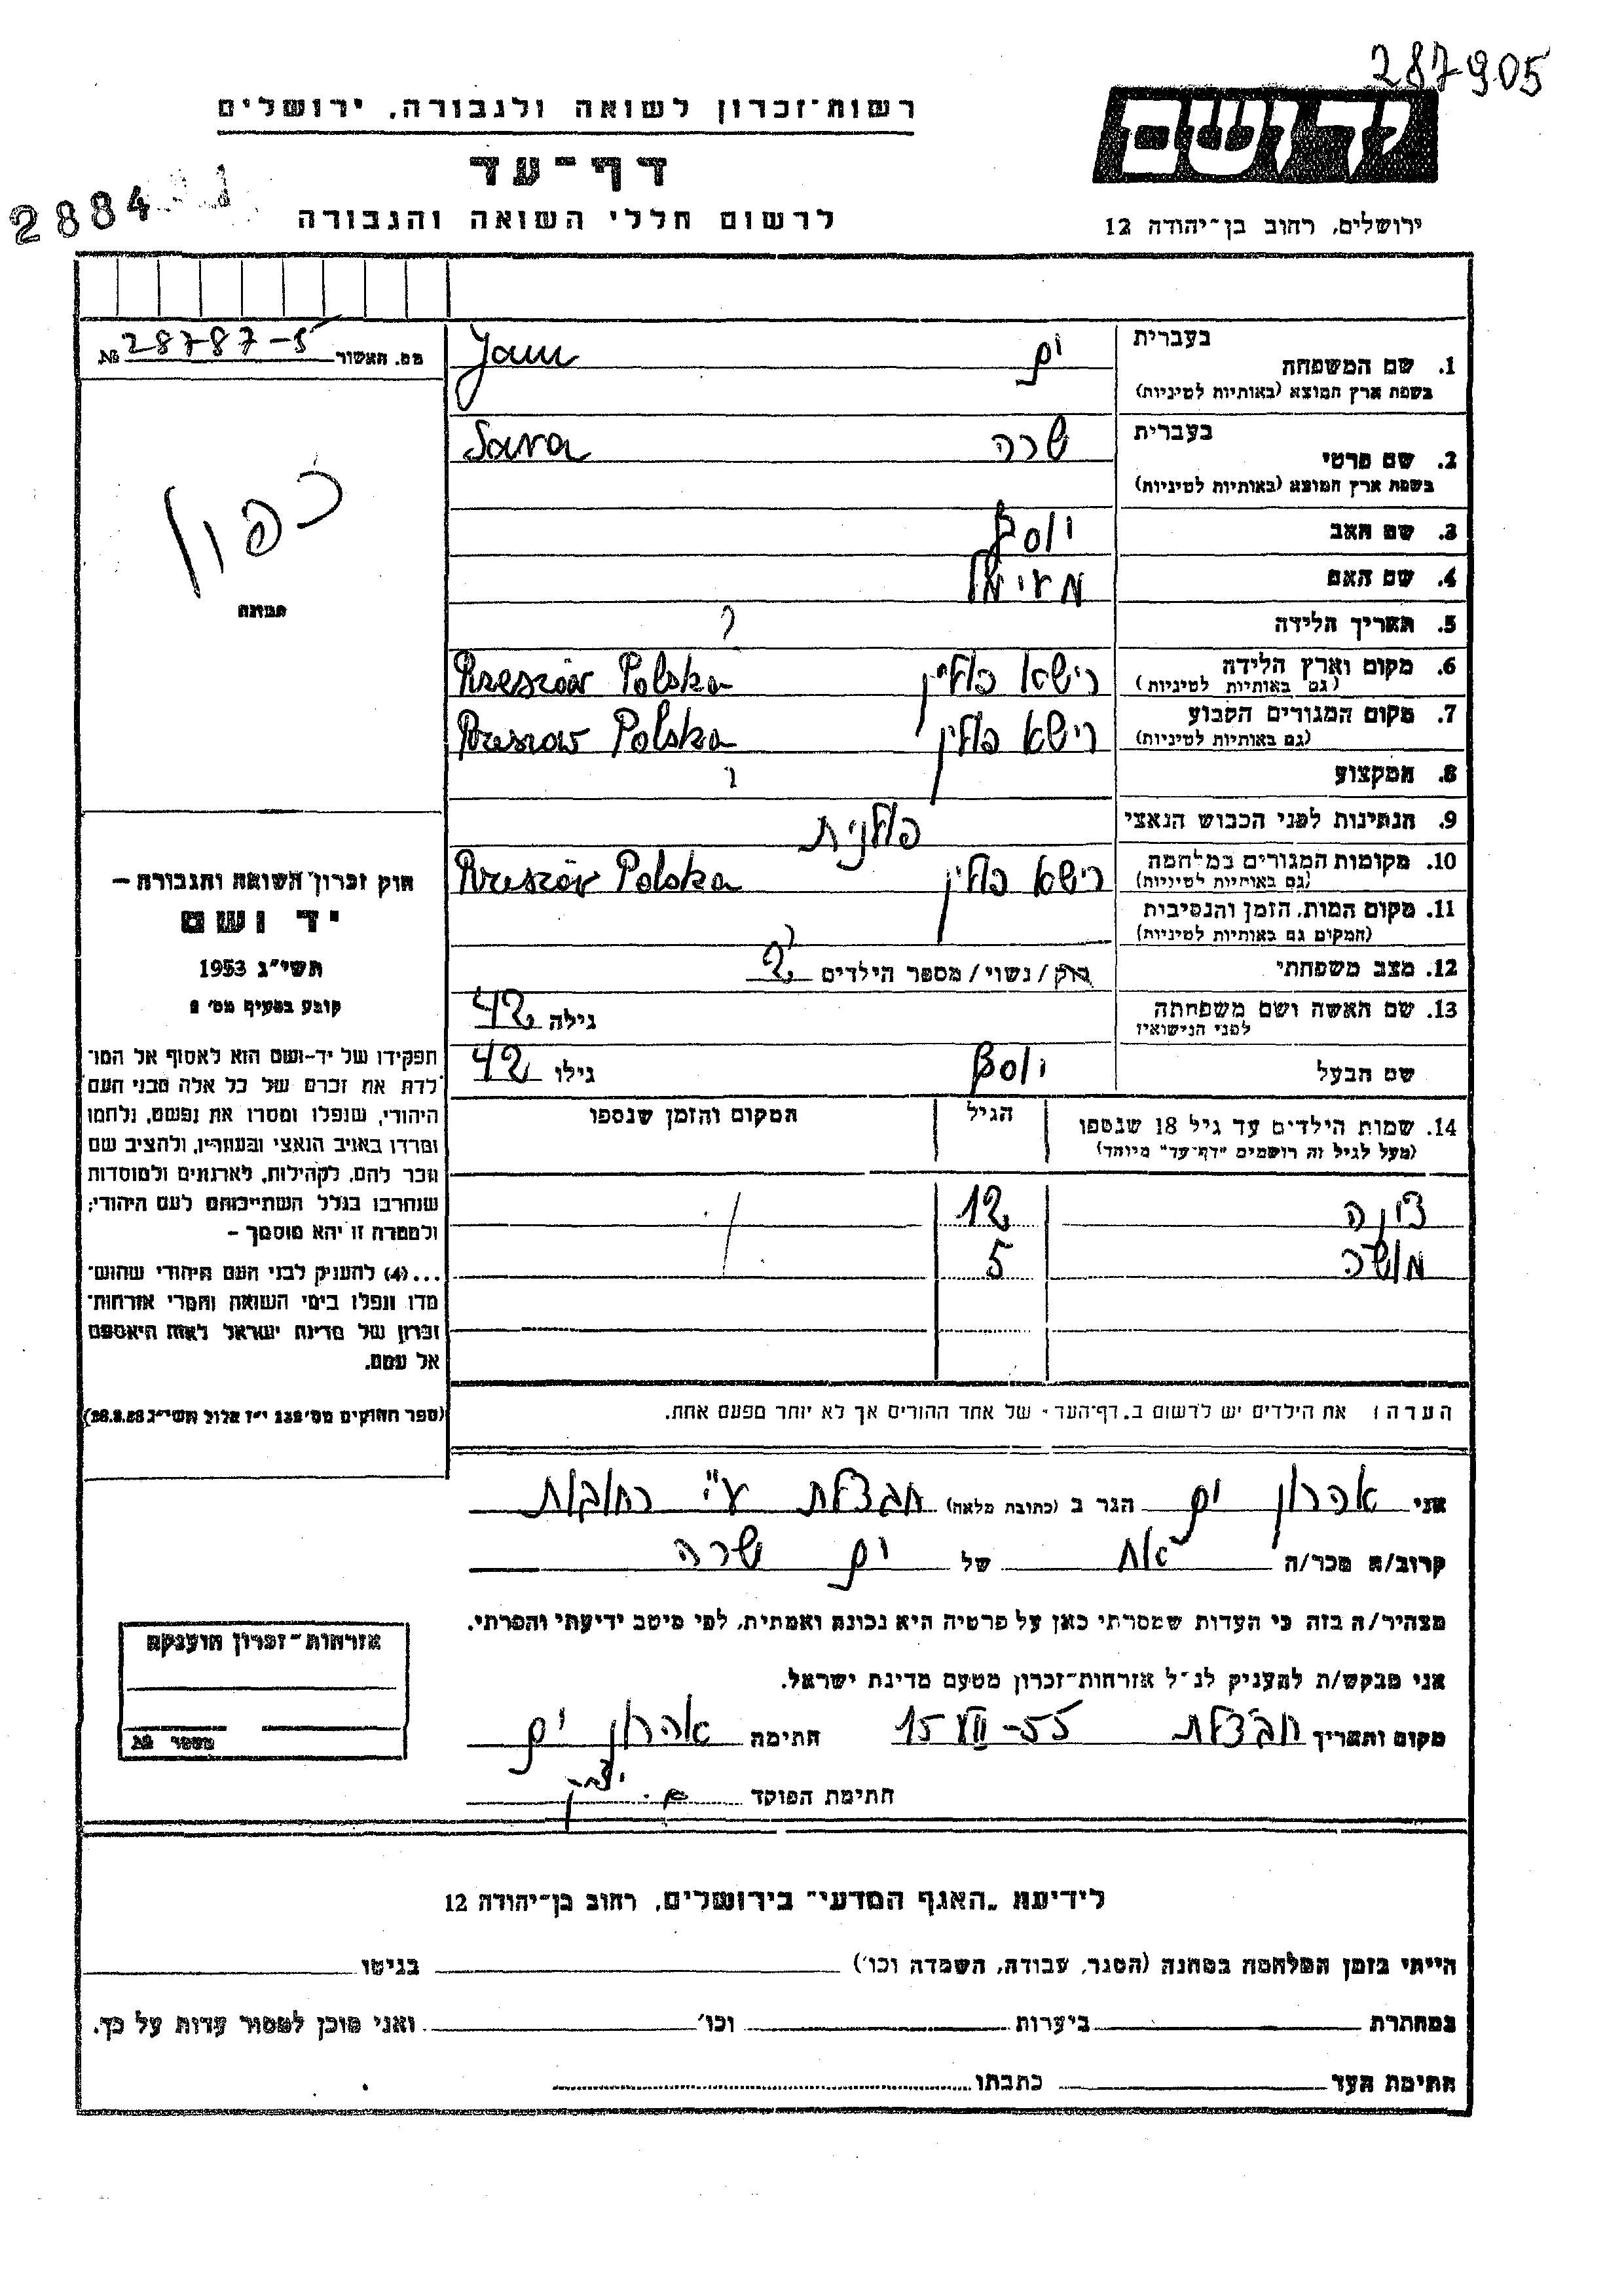 287905
רשות־זכרון לשואה ולגבורה, ירושלים
יד ושם
דף־עד
2884
לרשום חללי השואה והגבורה
ירושלים, רחוב בן־יהודה 12
בעברית
1. שם המשפחה
ים
Jam
(בשפת ארץ המוצא (באותיות לטיניות
מס. האשור 28787-5 №
בעברית
2. שם פרטי
שרה
Sara
(בשפת ארץ המוצא (באותיות לטיניות
כפול
תמונה
3. שם האב יוסף
4. שם האם
5. תאריך הלידה ?
6. מקום וארץ הלידה רישא פולין Rzeszów Polska
(גם באותיות לטיניות)
7. מקום המגורים הקבוע רישא פולין Rzeszow Polska
(גם באותיות לטיניות)
8. המקצוע ?
9. הנתינות לפני הכבוש הנאצי פולנית
10. מקומות המגורים במלחמה רישא פולין Rzeszów Polska
(גם באותיות לטיניות)
11. מקום המות, הזמן והנסיבות ?
(המקום גם באותיות לטיניות)
12. מצב משפחתי רוק / נשוי / מספר הילדים 2
13. שם האשה ושם משפחתה גילה 42
לפני הנישואין
שם הבעל יוסף גילו 42
14. שמות הילדים עד גיל 18 שנספו הגיל המקום והזמן שנספו
(מעל לגיל זה רושמים "דף־עד" מיוחד)
12
מושה 5
הערה: את הילדים יש לרשום ב„דף־העד״ של אחד ההורים אך לא יותר מפעם אחת.
חוק זכרון השואה והגבורה –
יד ושם
תשי"ג 1953
קובע בסעיף מס׳ 2
תפקידו של יד-ושם הוא לאסוף אל המו־
לדת את זכרם של כל אלה מבני העם
היהודי, שנפלו ומסרו את נפשם, נלחמו
ומרדו באויב הנאצי ובעוזריו, ולהציב שם
וזכר להם, לקהילות, לארגונים ולמוסדות
שנחרבו בגלל השתייכותם לעם היהודי;
ולמטרה זו יהא מוסמך –
...(4) להעניק לבני העם היהודי שהוש־
מדו ונפלו בימי השואה והמרי אזרחות־
זכרון של מדינת ישראל לאות היאספם
אל עמם.
(ספר החוקים מס׳ 132 י"ז אלול תשי"ג 28.8.53)
אני אהרון ים הגר ב (כתובת מלאה) חבצלת ע"י רחובות
קרוב/ה מכר/ה אח של ים שרה
מצהיר/ה בזה כי העדות שמסרתי כאן על פרטיה היא נכונה ואמתית, לפי מיטב ידיעתי והכרתי.
אני מבקש/ת להעניק לנ״ל אזרחות־זכרון מטעם מדינת ישראל.
מקום ותאריך חבצלת 15 VII-55 חתימה אהרון ים
חתימת הפוקד
אזרחות־זכרון הוענקה
מספר №
לידיעת „האגף המדעי״ בירושלים, רחוב בן־יהודה 12
הייתי בזמן המלחמה במחנה (הסגר, עבודה, השמדה וכו׳) בגיטו
במחתרת ביערות וכו׳ ואני מוכן למסור עדות על כך.
חתימת העד כתבתו